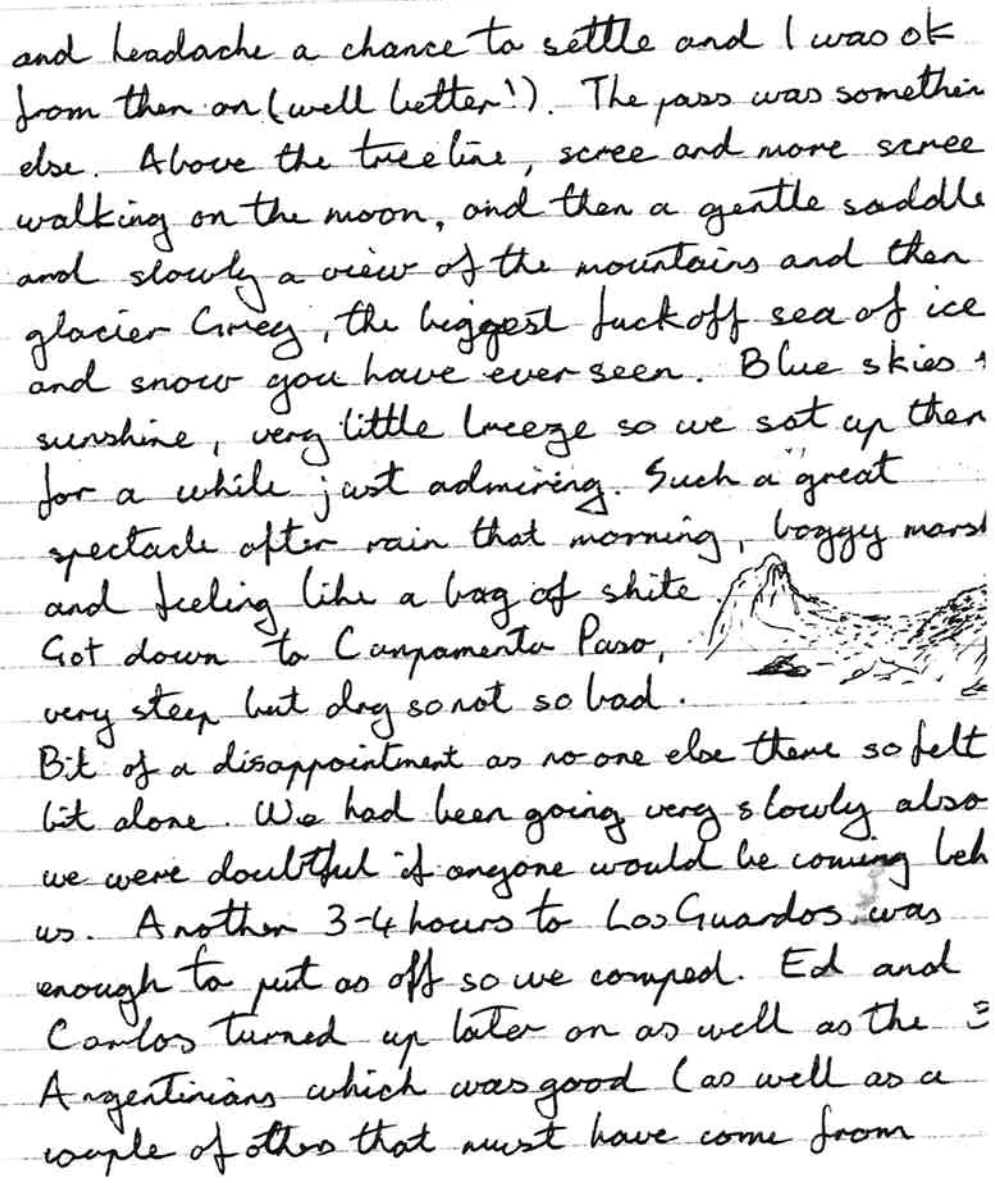 and headache a chance to settle and I was ok
from then on (well better!). The pass was somethin
else. Above the treeline, scree and more scree
walking on the moon, and then a gentle saddle
and slowly a view of the mountains and then
glacier Grey, the biggest fuckoff sea of ice
and snow you have ever seen. Blue skies +
sunshine, very little breeze so we sat up ther
for a while just admiring. Such a great
spectacle after rain that morning, boggy mars
and feeling like a bag of shite.
Got down to Campamento Paso,
very steep but dry so not so bad.
Bit of a disappointment as no-one else there so felt
bit alone. We had been going very slowly also
we were doubtful if anyone would be coming beh
us. Another 3-4 hours to Los Guardos was
enough to put us off so we camped. Ed and
Carlos turned up later on as well as the 3
Argentinians which was good (as well as a
couple of others that must have come from